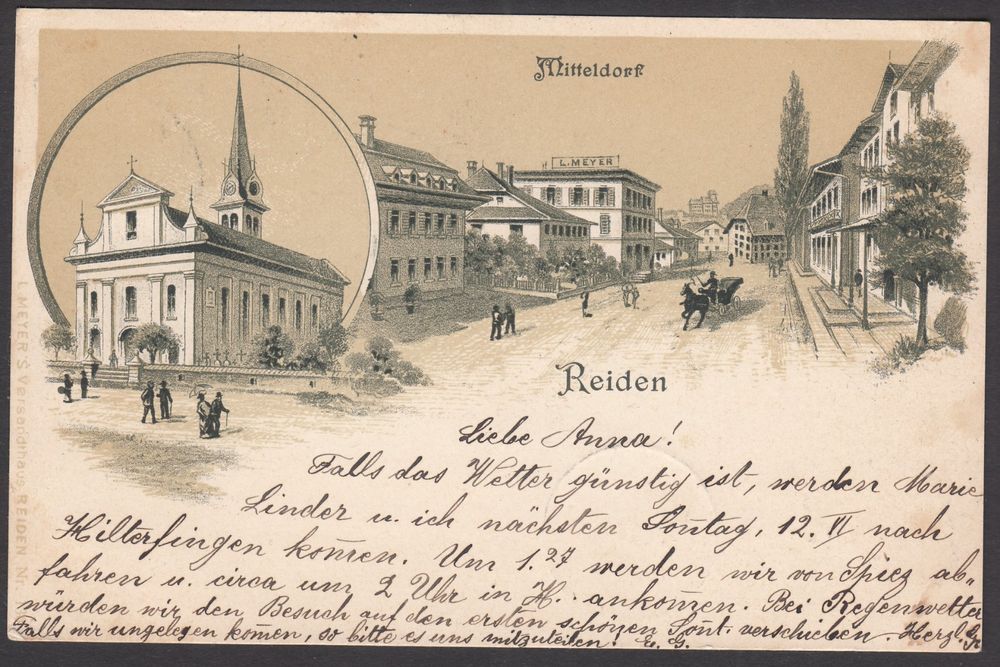 Mitteldorf
L. MEYER
Reiden
L. MEYER'S Versandhaus REIDEN Nr.
Liebe Anna!
Falls das Wetter günstig ist, werden Marie
Linder u. ich nächsten Son̄tag, 12. VI nach
Hilterfingen kom̄en. Um 1.27 werden wir von Spiez ab„
fahren u. circa um 2 Uhr in H. ankom̄en. Bei Regenwetter
würden wir den Besuch auf den ersten schönen Son̄t. verschieben. Herzl. Gr
Falls wir ungelegen kom̄en, so bitte es uns mitzuteilen.